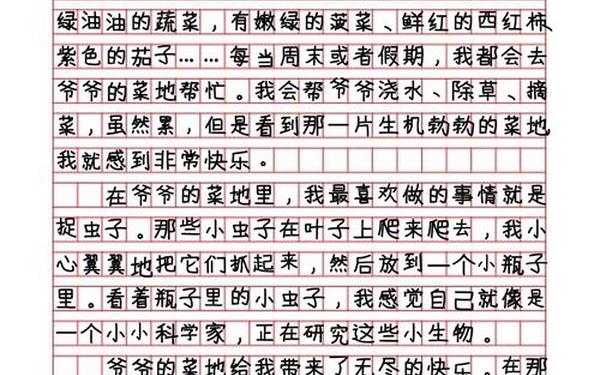 绿油油的蔬菜，有嫩绿的菠菜、鲜红的西红柿、
紫色的茄子……每当周末或者假期，我都会去
爷爷的菜地帮忙。我会帮爷爷浇水、除草、摘
菜，虽然累，但是看到那一片生机勃勃的菜地
我就感到非常快乐。
在爷爷的菜地里，我最喜欢做的事情就是
捉虫子。那些小虫子在叶子上爬来爬去，我小
心翼翼地把它们抓起来，然后放到一个小瓶子
里。看着瓶子里的小虫子，我感觉自己就像是
一个小小科学家，正在研究这些小生物。
爷爷的菜地给我带来了无尽的快乐。在那